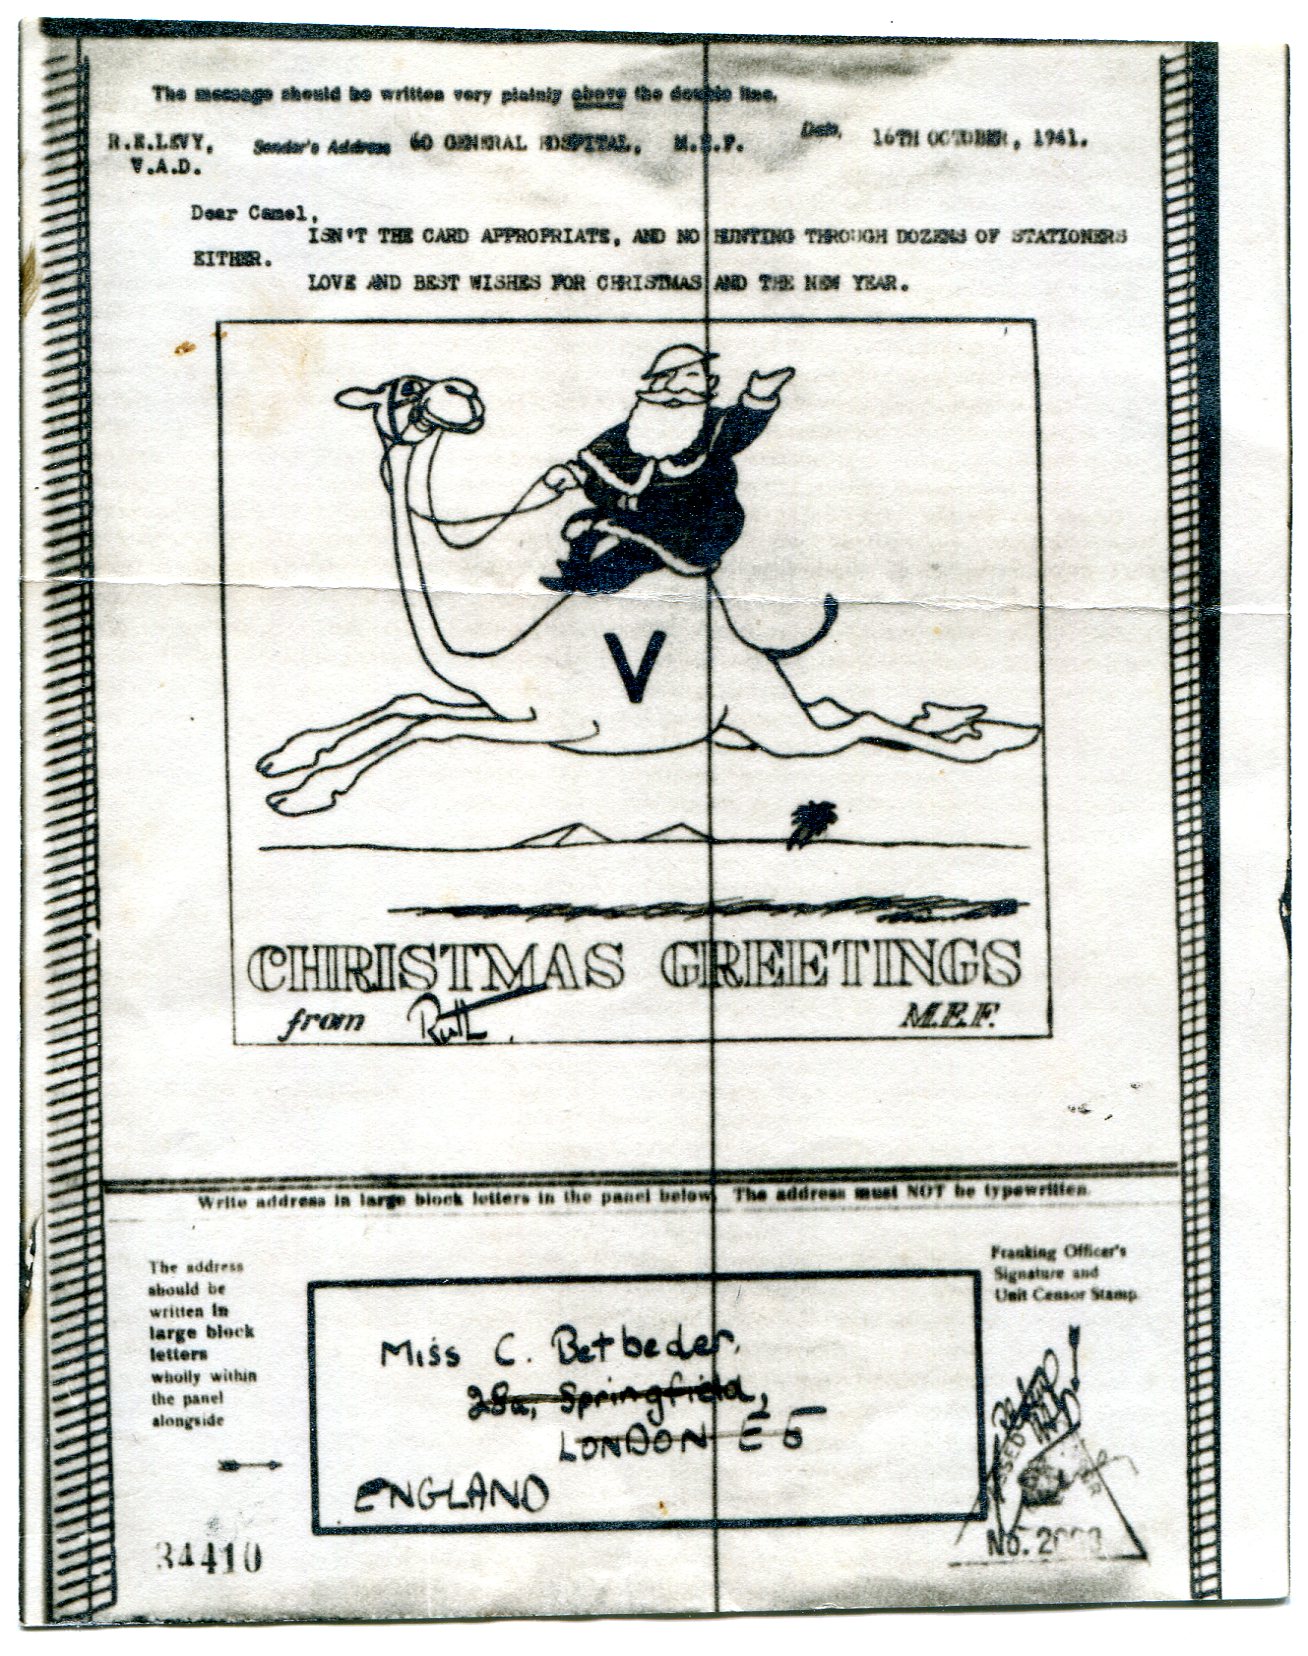 The message should be written very plainly above the double line.
R.E.LEVY, Sender's Address 60 GENERAL HOSPITAL, M.E.F. Date, 16TH OCTOBER, 1941.
V.A.D.
Dear Camel,
ISN'T THE CARD APPROPRIATE, AND NO HUNTING THROUGH DOZENS OF STATIONERS
EITHER.
LOVE AND BEST WISHES FOR CHRISTMAS AND THE NEW YEAR.
V
CHRISTMAS GREETINGS
from Ruth. M.E.F.
Write address in large block letters in the panel below. The address must NOT be typewritten.
The address
should be
written in
large block
letters
wholly within
the panel
alongside
Franking Officer's
Signature and
Unit Censor Stamp.
Miss C. Betbeder.
28a, Springfield,
LONDON E 5
ENGLAND
34410
No.